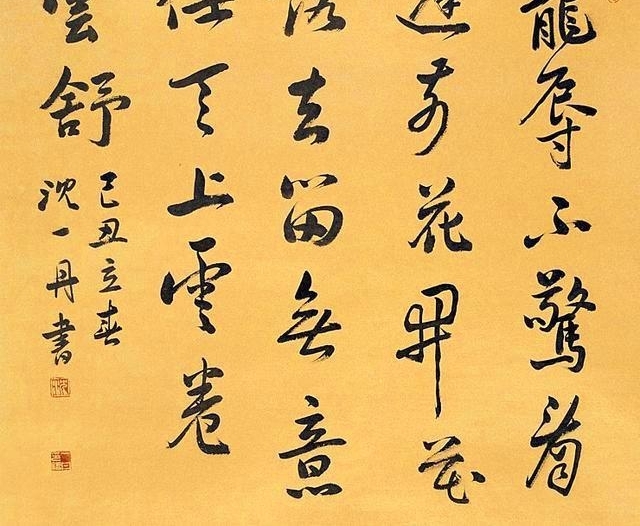 寵辱不驚看
庭前花開花
落去留無意
任天上雲卷
雲舒
己丑立春
沈一丹書